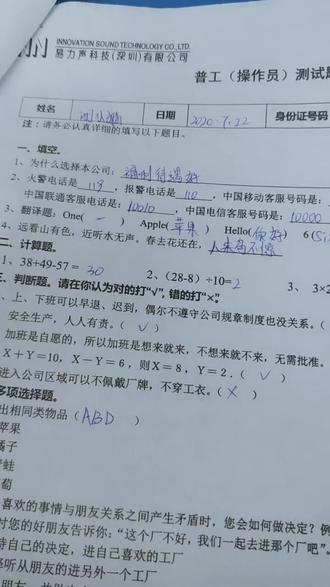 INNOVATION SOUND TECHNOLOGY CO., LTD.
易力声科技(深圳)有限公司
普工（操作员）测试题
姓名 日期 2020.7.22 身份证号码
注：请务必认真详细的填写以下题目。
一、填空。
1、为什么选择本公司：福利待遇好
2、火警电话是 119 ，报警电话是 110 ，中国移动客服号码是：
中国联通客服电话是：10010 ，中国电信客服号码是：10000
3、翻译题：One( 一 ) Apple( 苹果 ) Hello( 你好 ) 6(Si
4、远看山有色，近听水无声。春去花还在，人来鸟不惊
二、计算题。
1、38+49-57= 30 2、(28-8）÷10=2 3、3×2
三、判断题。请在你认为对的打“√”, 错的打“×”。
、上、下班可以早退、迟到，偶尔不遵守公司规章制度也没关系。（
安全生产，人人有责。（ √ ）
加班是自愿的，所以加班是想来就来，不想来就不来，无需批准。
X＋Y＝10，X－Y＝6，则X＝8，Y＝2.（ √ ）
进入公司区域可以不佩戴厂牌，不穿工衣。（ X ）
多项选择题。
出相同类物品（ABD ）
苹果
橘子
青蛙
葡萄
喜欢的事情与朋友关系之间产生矛盾时，您会如何做决定？例
时您的好朋友告诉你：“这个厂不好，我们一起去进那个厂吧”。
持自己的决定，进自己喜欢的工厂
择听从朋友的进另外一个工厂